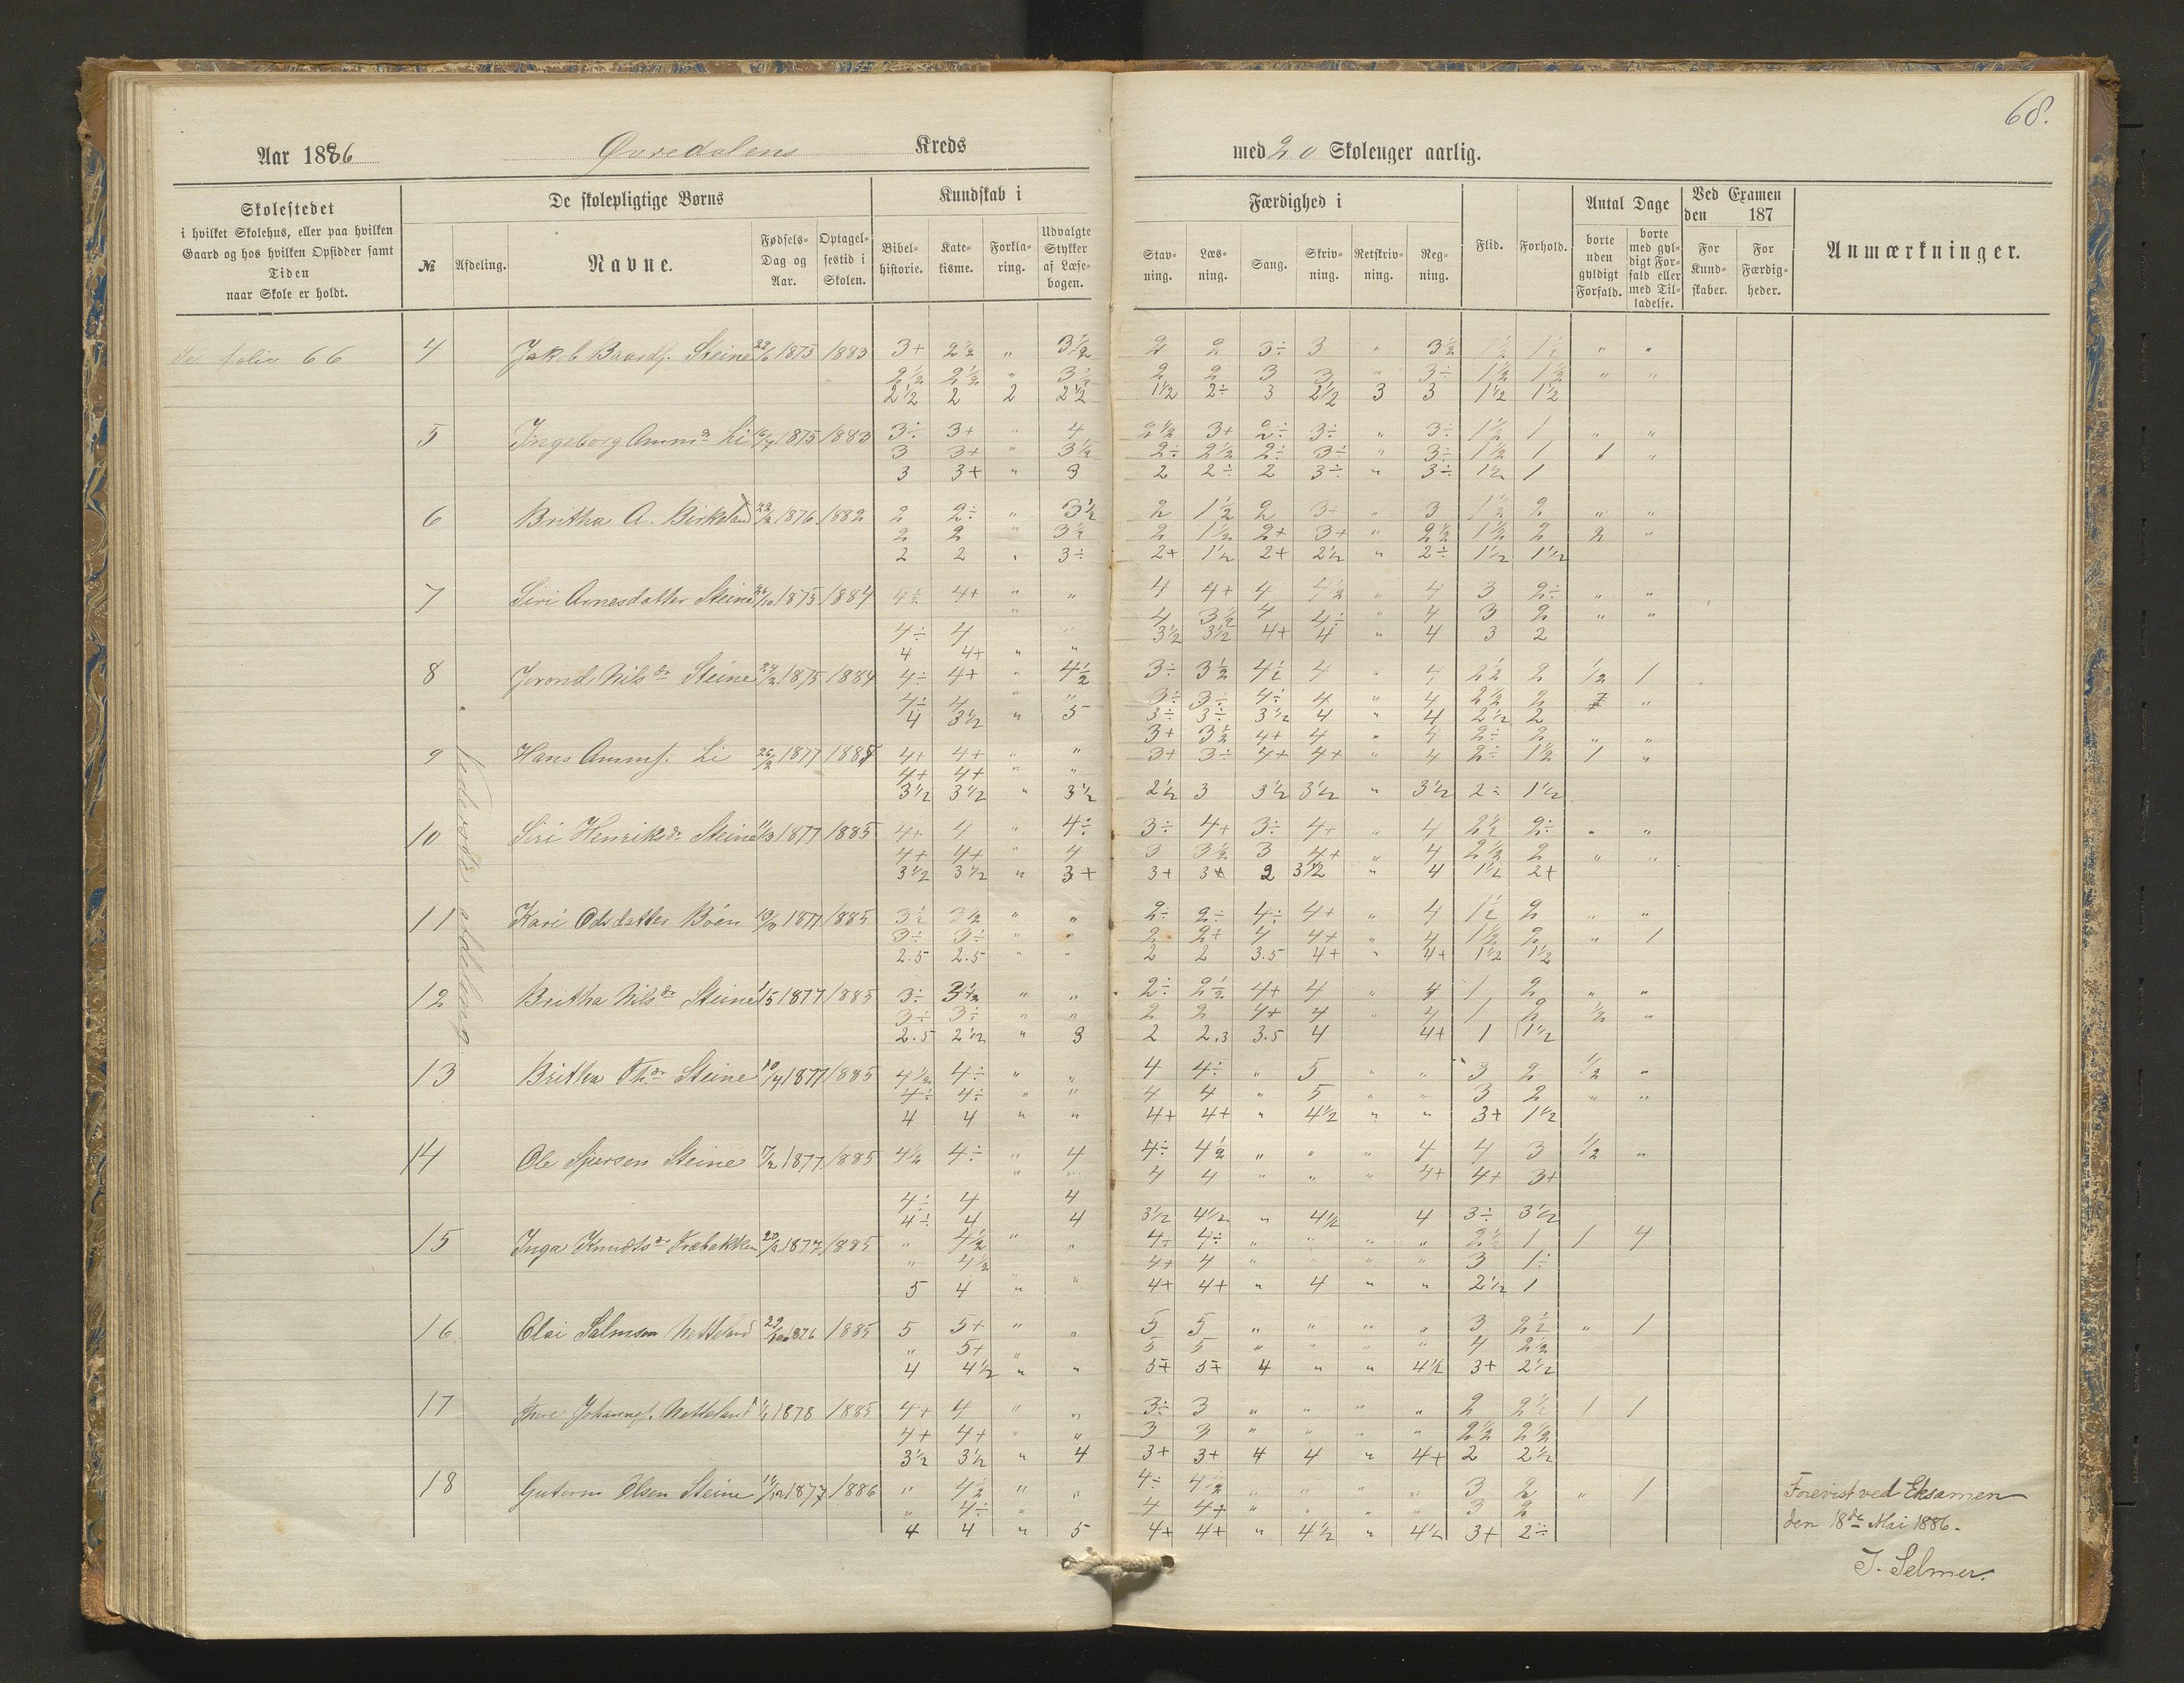 68.
Aar 1886 Øvredalens Kreds med 20 Skoleuger aarlig.
Skolestedet
i hvilket Skolehus, eller paa hvilken
Gaard og hos hvilken Opsidder samt
Tiden
naar Skole er holdt.
De skolepligtige Børns
№ Afdeling. Navne. Fødsels-Dag og Aar. Optagelsestid i Skolen.
Kundskab i
Bibelhistorie. Katekisme. Forklaring. Udvalgte Stykker af Læsebogen.
Færdighed i
Stavning. Læsning. Sang. Skrivning. Retskrivning. Regning.
Flid. Forhold.
Antal Dage
borte uden gyldigt Forfald. borte med gyldigt Forfald eller med Tilladelse.
Ved Examen
den 187
For Kundskaber. For Færdigheder.
Anmærkninger.
folio 66
Nederste afdeling
4 Jakob Baards. Steine 29/6 1875 1883 3+ 2½ " 3½ 2 2 3÷ 3 " 3½ 1½ 1½ " "
2½ 2½ " 3½ 2 2 3 3 " 3÷ 1½ 1½ " "
2½ 2 2 2½ 1½ 2÷ 3 2½ 3 3 1½ 1½
5 Ingeborg Li 1875 1883 3÷ 3+ " 4 2½ 3+ 2÷ 3÷ " 3÷ 1½ 1 " "
3 3+ " 3½ 2÷ 2½ 2÷ 3÷ " 3÷ 1½ 1 1 "
3 3+ " 3 2 2÷ 2 3÷ " 3÷ 1½ 1
6 Britha A. Birkeland 1876 1882 2 2÷ " 3½ 2 1½ 2 3+ " 3 1½ 2 " "
2 2 " 3½ 2 1½ 2+ 3+ " 2½ 1½ 2 2 "
2 2 " 3÷ 2+ 1½ 2+ 2½ " 2÷ 1½ 1½
7 Siri Arnesdatter Steine 1875 1884 4½ 4+ " " 4 4+ 4 4½ " 4 3 2÷ " "
4÷ 4 4 3½ 4 4÷ " 4 3 2 " "
4 4+ " " 3½ 3½ 4+ 4 " 4 3 2
8 Jorond Nils dr Steine 1875 1884 4÷ 4+ " 4½ 3÷ 3½ 4½ 4 " 4 2½ 2 ½ 1
4÷ 4 " " 3÷ 3÷ 4÷ 4 " 4 2½ 2 "
4 3½ " 5 3÷ 3÷ 3½ 4 " 4 2½ 2
9 Hans Li 1877 4+ 4+ " " 3+ 3½ 4+ 4 " 4 2÷ 2 " "
4+ 4+ " " 3+ 3÷ 4+ 4+ " 4 2÷ 1½ 1 "
3½ 3½ " 3½ 2½ 3 3½ 3½ " 3½ 2÷ 1½
10 Siri Henriksdr Steine 11/3 1877 1885 4+ 4 " 4÷ 3÷ 4+ 3÷ 4+ " 4 2½ 2÷ " "
4+ 4+ " 4 3 3½ 3 4+ " 4 2½ 2 " "
3½ 3½ " 3+ 3+ 3+ 2 3½ " 4 1½ 2+
11 Kari Odsdatter Böen 1877 1885 3½ 3½ " " 2÷ 2÷ 4÷ 4+ " 4 1½ 2 " "
3÷ 3÷ " " 2 2+ 4 4+ " 4 1½ 2 " 1
2.5 2.5 " " 2 2 3.5 4+ " 4+ 1½ 1½
12 Britha Nils dr Steine 1/5 1877 1885 3÷ 3½ " " 2÷ 2½ 4+ 4 " 4 1 2 " "
3÷ 3÷ " " 2 2 4+ 4 " 4 1 2 ½ "
2.5 2½ " 3 2 2.3 3.5 4 4+ 1 1½
13 Britha Th. dr Steine 10/4 1877 1885 4½ 4÷ " " 4 4÷ " 5 " " 3 2 ½ "
4÷ 4÷ " " 4 4 " 5 " " 3 2 " "
4 4 " " 4+ 4+ " 4½ " " 3+ 1½
14 Ole Sjursen Steine 7/2 1877 1885 4½ 4÷ " 4 4÷ 4½ " " " 4 4 3 ½ "
4÷ 4 4 4 4 " " " 4+ 4+ 3+
4÷ 4 4 3½ 4½ " 4½ 4 3÷ 3½
15 Inga Knudts dr 1877 1885 " 4½ " " 4+ 4÷ " " " " 2½ 1 1 4
" 4½ 4+ 4 " " " " 3 1÷
5 4 " " 4+ 4+ " 4 " " 2½ 1
16 Olai Salmsen Netteland 1876 1885 5 5+ " " 5 5 " " " " 3 2½ " 1
" 5+ " 5 5 " " " " 4 2½
4 4½ " " 5+ 5+ 4 " " 4½ 3+ 2½
17 Johannes. Netteland 1878 1885 4+ 4 " " 3÷ 3 " " " " 2 2½ 1 1
4+ 4+ " " 3 3 " " " " 2½ 2½
3½ 3½ " 4 3+ 3+ 4 4 " 4+ 2 2½
18 Gutorm Olsen Steine 1877 1886 " 4½ " " 4÷ 4½ " " " " 3 2 " 1
" 4÷ 4 4+ " " " " 3 2
4 4 " 5 4+ 4+ " 4½ " 4½ 3+ 2÷
Forevist ved Eksamen
den 18de Mai 1886.
J. Selmer.